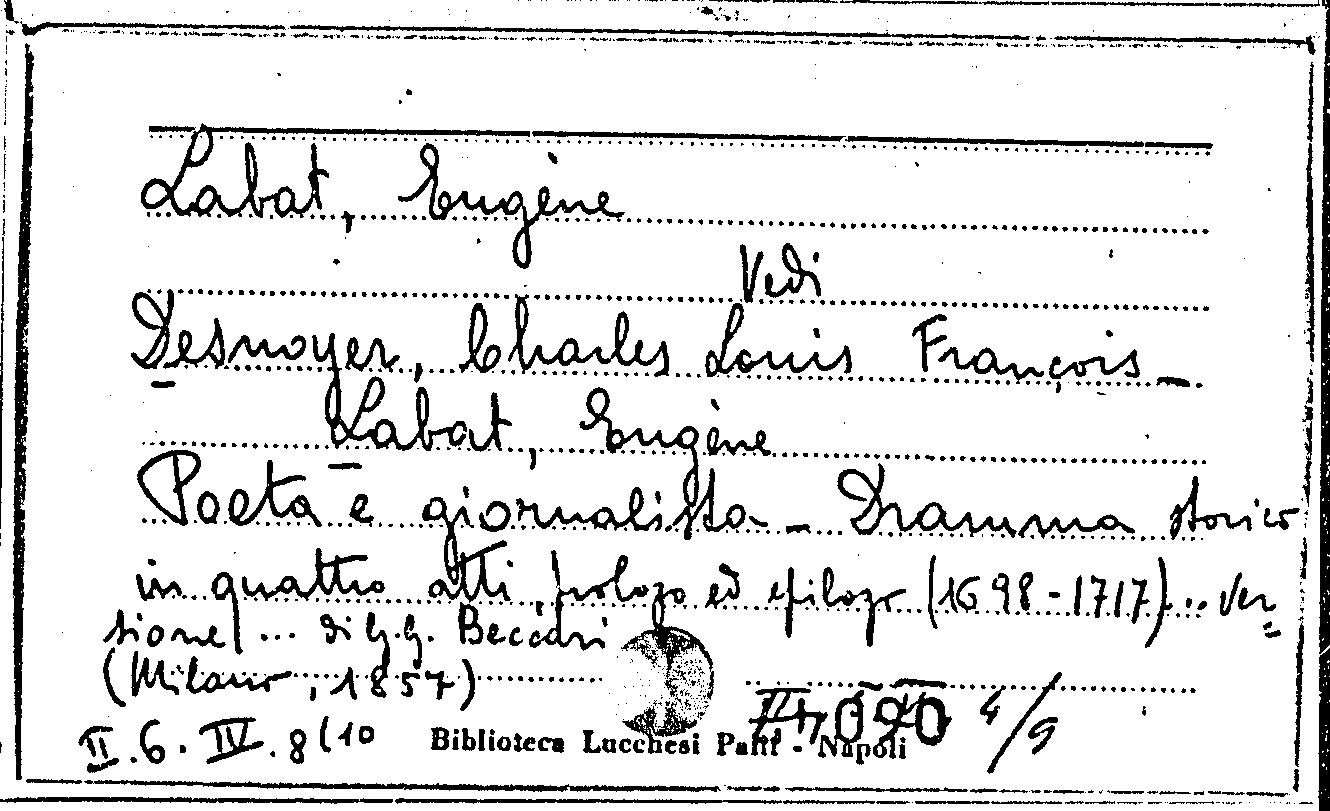 Labat, Eugène
Vedi
Desnoyer, Charles Louis François -
Labat, Eugène
Poeta e giornalista - Dramma storico
in quattro atti, prologo ed epilogo (1698-1717)... Ver=
sione ... di G.G. Beccari
(Milano, 1857)
4/9
II.6.IV.8(10
Biblioteca Lucchesi Palli - Napoli